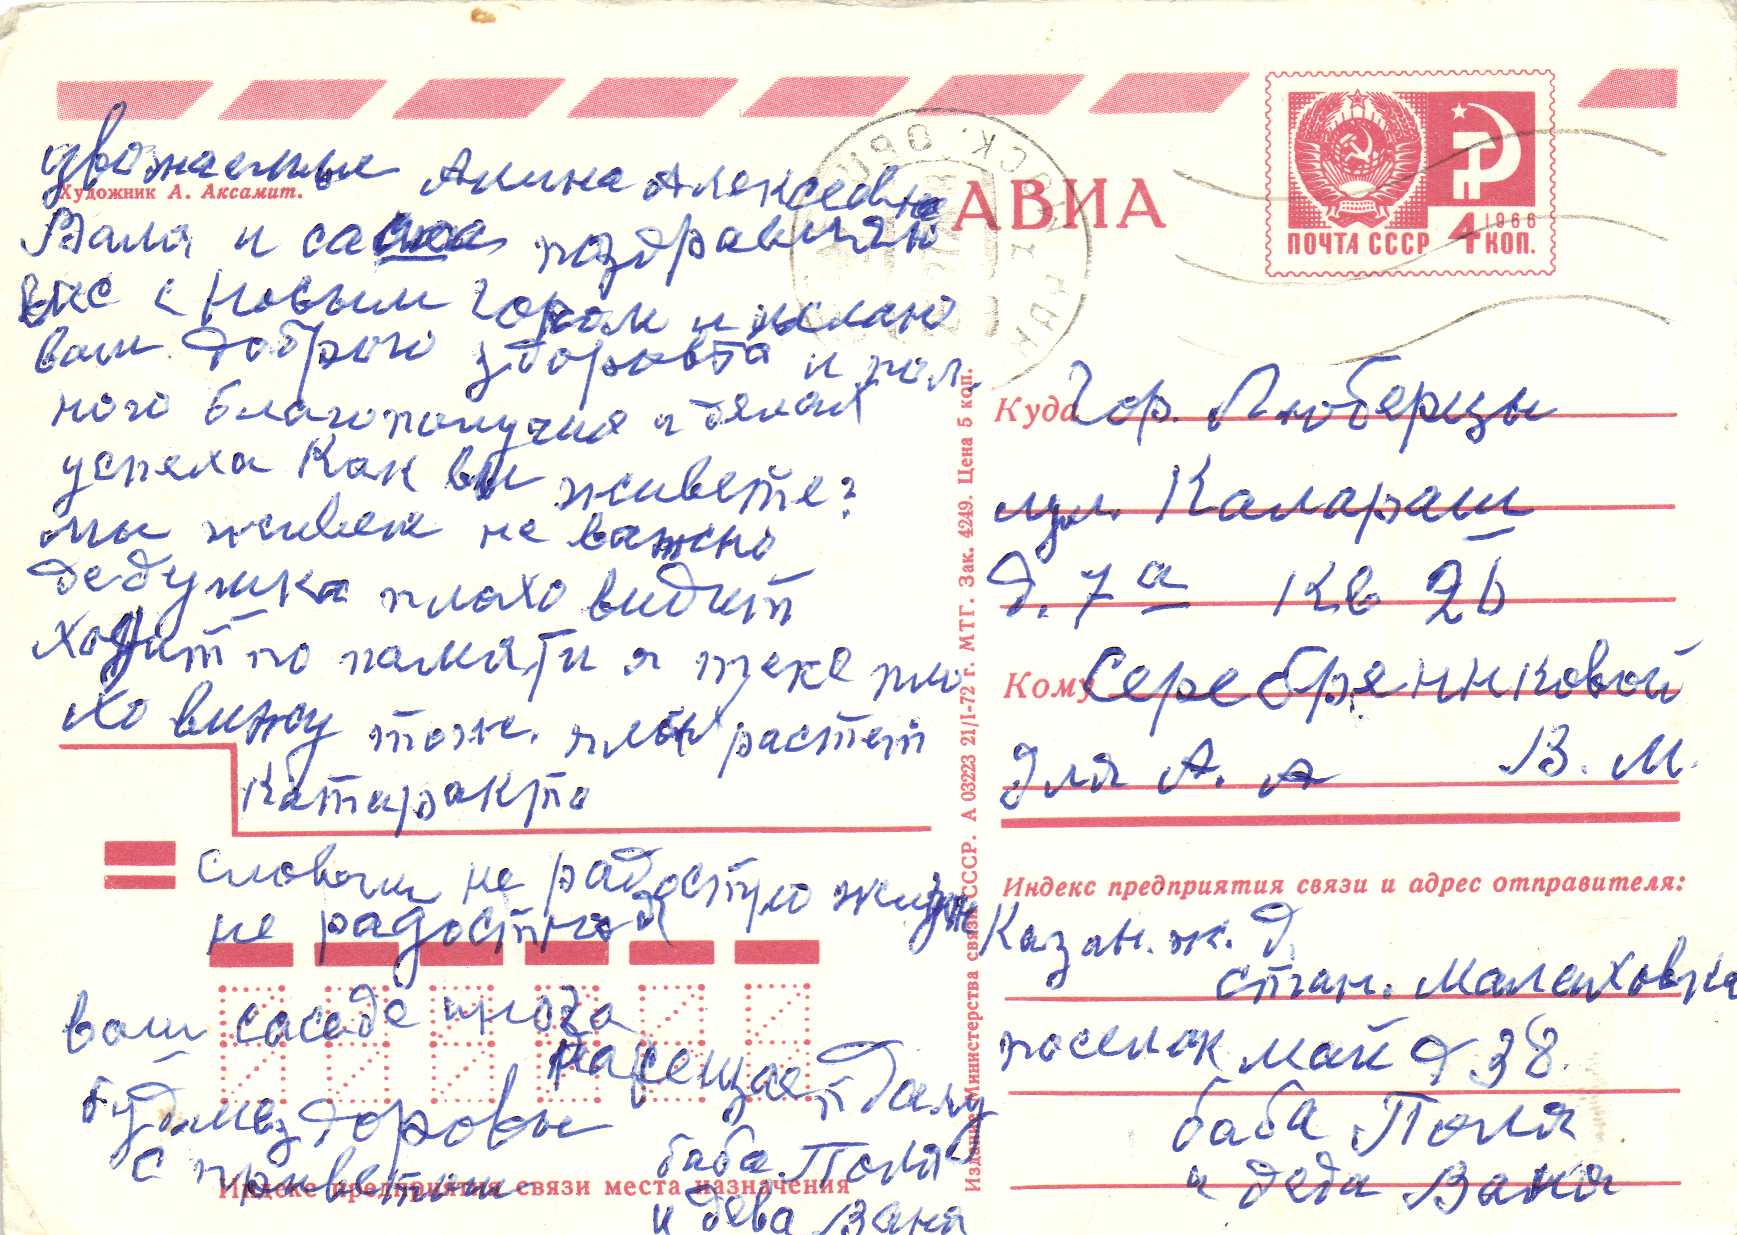 уважаемые Алина Алексевна
Художник А. Аксамит.
Валя и саша поздравляю
вас с новым годом и желаю
вам доброго здоровья и пол
ного благополучия и делах
успеха Как вы живете?
мы живем не важно
дедушка плохо видит
ходит по памяти я тоже пло
хо вижу тож. растет
катаракта
словом не радостную жизнь
не радостная
ваш саседе
будте здоровы
с приветом
баба Поля
и деда Ваня
Индекс предприятия связи места назначения
АВИА
1966
ПОЧТА СССР 4 КОП.
Издание Министерства связи СССР. А 03223 21/I-72 г. МТГ. Зак. 4249. Цена 5 коп.
Куда гор. Люберцы
ул. Калараш
д. 7а кв 26
Кому Серебрянниковой
для А. А В. М.
Индекс предприятия связи и адрес отправителя:
Казан. ж. д
стан. Малаховка
поселок май д 38.
баба Поля
и деда Ваня